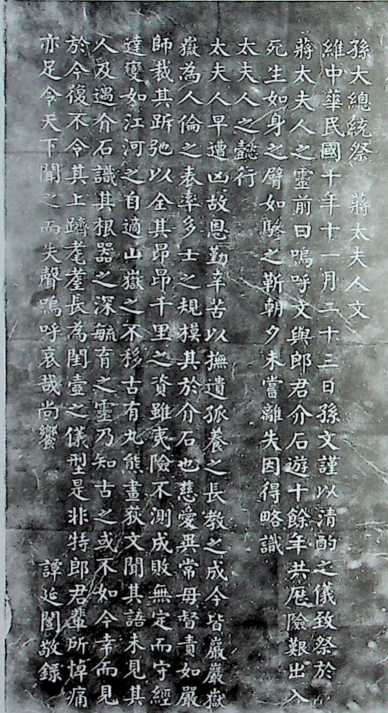 孫大總統祭　蔣太夫人文
維中華民國十年十一月二十三日孫文謹以清酌之儀致祭於
蔣太夫人之靈前曰嗚呼文與郎君介石遊十餘年共歷險艱出入
死生如身之臂如驂之靳朝夕未嘗離失因得略識
太夫人之懿行
太夫人早遭凶故恩勤辛苦以撫遺孤養之長教之成今皆嚴嚴嶽
嶽為人倫之表率多士之規模其於介石也慈愛異常母督責如嚴
師裁其跅弛以全其昂昂千里之資雖夷險不測成敗無定而守經
達變如江河之自適山嶽之不移古有丸熊畫荻文聞其語未見其
人及遇介石識其根器之深毓育之靈乃知古之或不如今幸而見
於今復不令其上躋耄耋長為閨壼之儀型是非特郎君輩所悼痛
亦足令天下聞之而失聲嗚呼哀哉尚饗　譚延闓敬錄